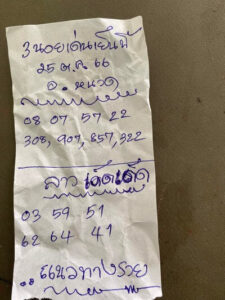 3นอยเด่นเย็นนี้
25 ต.ค. 66
อ. หนวด
08 07 57 22
308, 907, 857, 322
ลาว เด็ดเด็ด
03 59 51
62 64 41
แนวทางรวย